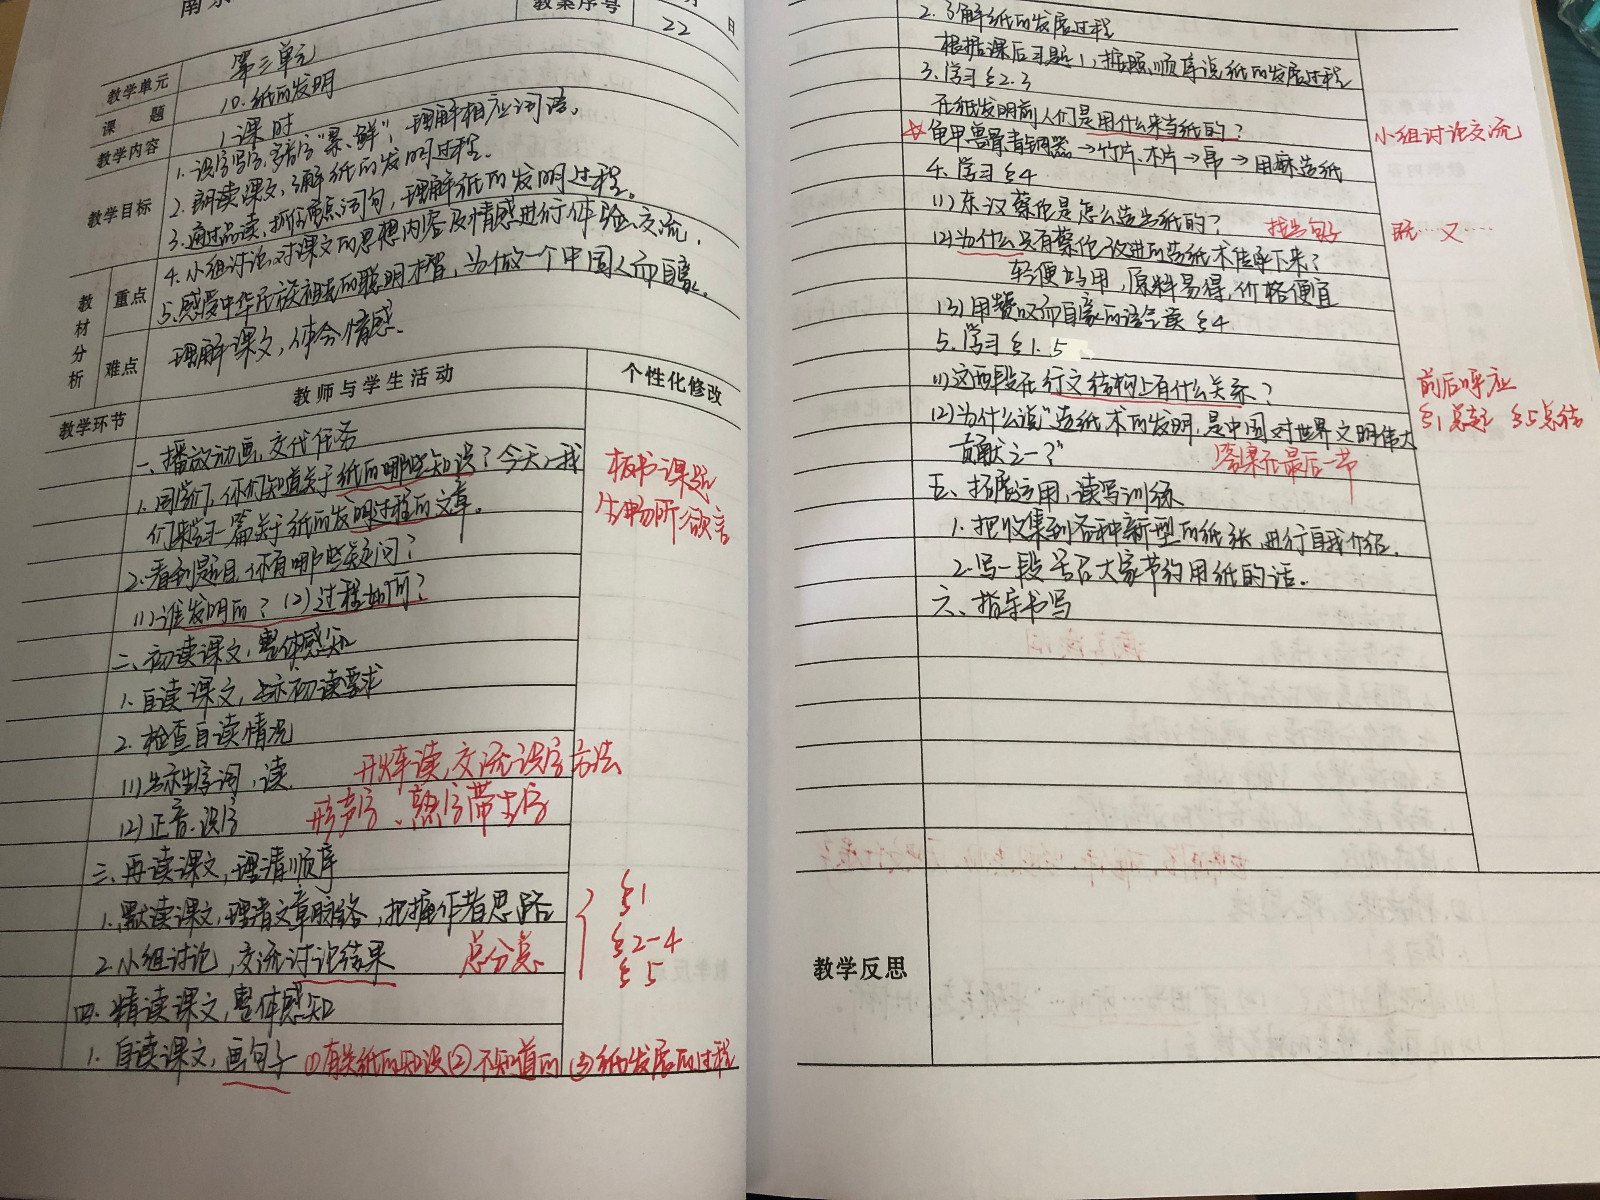 南京
教案序号 22
月 日
教学单元 第三单元
课题 10.纸的发明
教学内容 1课时
教学目标
1.识字写字,多音字“累、鲜”,理解相应词语。
2.朗读课文,了解纸的发明过程。
3.通过品读、抓住重点词句,理解纸的发明过程。
4.小组讨论,对课文的思想内容及情感进行体验、交流.
5.感受中华民族祖先的聪明才智,为做一个中国人而自豪。
教材分析
重点
难点
理解课文,体会情感.
教学环节 教师与学生活动 个性化修改
一、播放动画,交代任务
1.同学们,你们知道关于纸的哪些知识?今天,我 板书课题
们来学习一篇关于纸的发明过程的文章。 生畅所欲言
2.看到题目,你有哪些疑问?
(1)谁发明的?(2)过程如何?
二、初读课文,整体感知
1.自读课文,出示初读要求
2.检查自读情况
(1)出示生字词,读. 开火车读,交流识字方法
(2)正音.识字 形声字、熟字带生字
三、再读课文,理清顺序
1.默读课文,理清文章脉络,把握作者思路 ξ1
2.小组讨论,交流讨论结果 总分总 ξ2-4
ξ5
四.精读课文,整体感知
1.自读课文,画句子 ①有关纸的知识②不知道的③纸发展的过程
2.了解纸的发展过程
根据课后习题1,按照顺序说纸的发展过程
3.学习ξ2.3
在纸发明前人们是用什么来当纸的? 小组讨论交流
☆龟甲.兽骨青铜器→竹片、木片→帛→用麻造纸
4.学习ξ4
(1)东汉蔡伦是怎么造出纸的? 找出句子 既…又…
(2)为什么只有蔡伦改进的造纸术传承下来?
轻便好用,原料易得,价格便宜
(3)用赞叹而自豪的语气读ξ4
5.学习ξ1.5
(1)这两段在行文结构上有什么关系? 前后呼应
(2)为什么说“造纸术的发明,是中国对世界文明伟大 ξ1总起 ξ5总结
贡献之一”? 答案在最后一节
五、拓展运用,读写训练
1.把收集到各种新型的纸张,进行自我介绍.
2.写一段号召大家节约用纸的话.
六、指导书写
教学反思